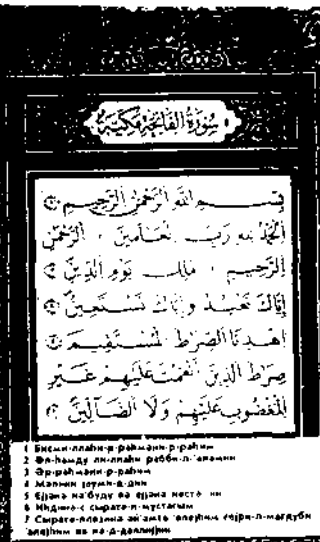 سورة الفاتحة مكية
بسم الله الرحمن الرحيم
الحمد لله رب العالمين الرحمن
الرحيم ملك يوم الدين
إياك نعبد وإياك نستعين
اهدنا الصراط المستقيم
صراط الذين أنعمت عليهم غير
المغضوب عليهم ولا الضالين
1 Бисми-ллаһи-р-рәһмани-р-рәһим
2 Әл-һәмду ли-ллаһи рәбби-л-'аләмин
3 Әр-рәһмани-р-рәһим
4 Мәлики јәуми-д-дин
5 Ејјакә нә'буду вә ејјакә нәстә'ин
6 Иһдинә-с сыратә-л-мустәгым
7 Сыратә-лләзинә әй'әмтә 'әлејһим ғәјри-л-мәғдуби
'әлејһим вә лә-д-даллијјин